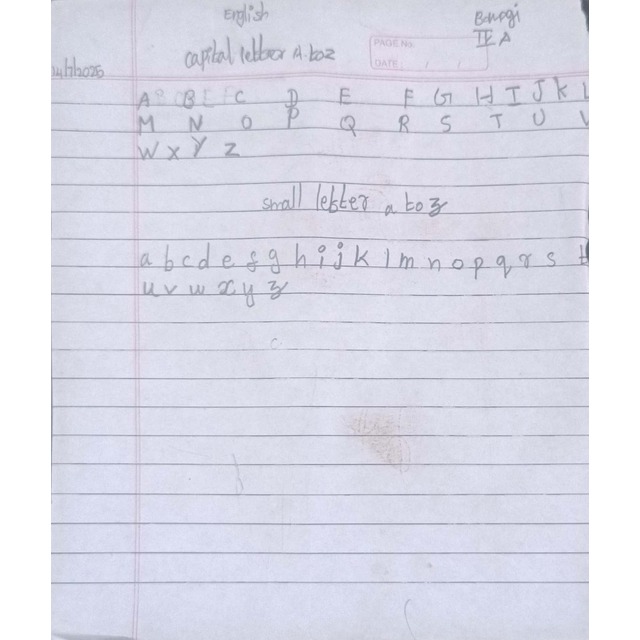 English
capital letter A to z
PAGE No.
DATE / /
IV A
A B C D E F G H I J K L
M N O P Q R S T U V
W X Y Z
small letter a to z
a b c d e f g h i j k l m n o p q r s t
u v w x y z